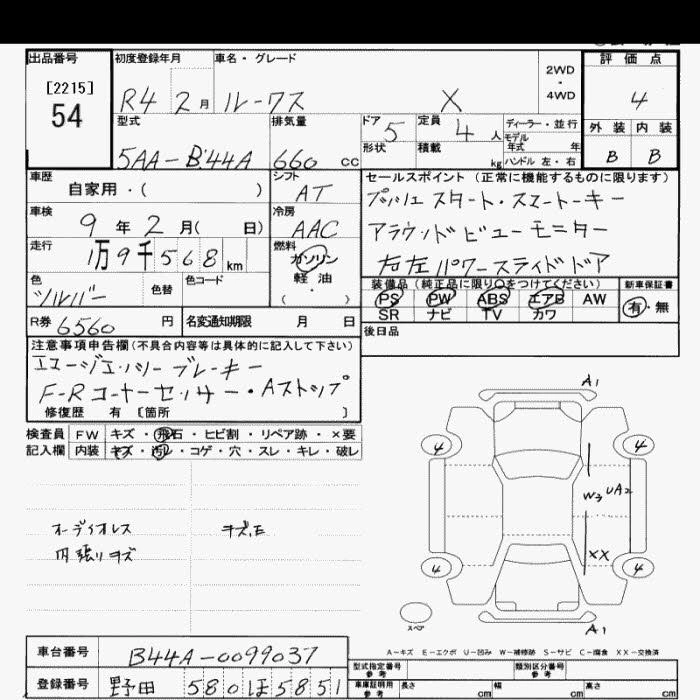 出品番号
[2215]
54
初度登録年月
R4 2月
車名・グレード
ルークス X
2WD
・
4WD
評価点
4
外装 内装
B B
型式
5AA-B44A
排気量
660 cc
ドア 5
定員 4 人
形状
積載 kg
ディーラー・並行
モデル
年式 年
ハンドル 左・右
車歴
自家用・( )
シフト
AT
車検
9 年 2 月( 日)
冷房
AAC
走行
1万9千568 km
燃料
ガソリン
軽油
・
( )
色
シルバー
色替
色コード
R券 6560 円
名変通知期限 月 日
セールスポイント(正常に機能するものに限ります)
プッシュスタート・スマートキー
アラウンドビューモニター
右左パワースライドドア
装備品(純正品に限り○をつけてください)
PS PW ABS エアB AW
SR ナビ TV カワ
新車保証書
有・無
後日品
注意事項申告欄(不具合内容等は具体的に記入して下さい)
エマージェンシーブレーキー
F-Rコーナーセンサー・Aストップ
修復歴 有 〔箇所 〕
検査員 FW キズ・飛石・ヒビ割・リペア跡・×要
記入欄 内装 キズ・汚レ・コゲ・穴・スレ・キレ・破レ
オーディオレス
内張りキズ
A1
4 4
W3 UA2
XX
4 4
スペア
A1
A-キズ E-エクボ U-凹み W-補修跡 S-サビ C-腐食 XX-交換済
車台番号 B44A-0099037
登録番号 野田 580 ほ 5851
型式指定番号
参考
類別区分番号
参考
車庫証明用
参考
長さ cm 幅 cm 高さ cm